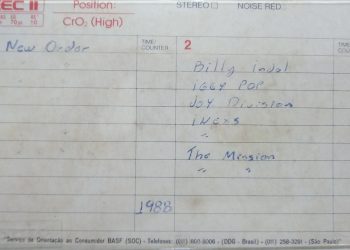 EC II
Position:
CrO2 (High)
STEREO □ NOISE RED. □
New Order
TIME/
COUNTER
2
TIME/
COUN
Billy Indol
IGGY POP
Joy Division
INEXS
"
The Mission
" "
1988
"Serviço de Orientação ao Consumidor BASF (SOC) - Telefones: (011) 800-8006 - (DDG - Brasil) - (011) 258-3291 - (São Paulo)"